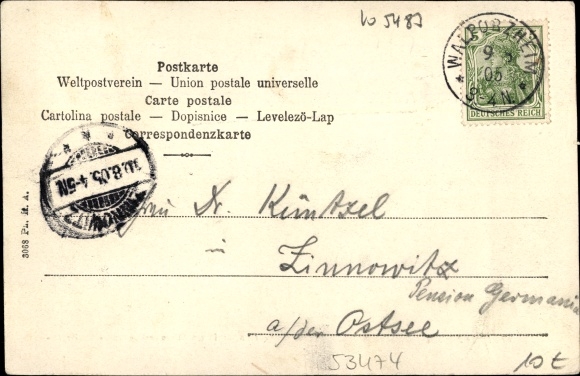 10 5483
WALPORZHEIM
9 8
05
3-4 N
DEUTSCHES REICH
Postkarte
Weltpostverein — Union postale universelle
Carte postale
Cartolina postale — Dopisnice — Levelező-Lap
Correspondenzkarte
ZINNOWITZ
10.8.05. 4-5N
3068 Ph. H. A.
Frau Dr. Küntzel
in
Zinnowitz
Pension Germania
a/der Ostsee
53474
10 E